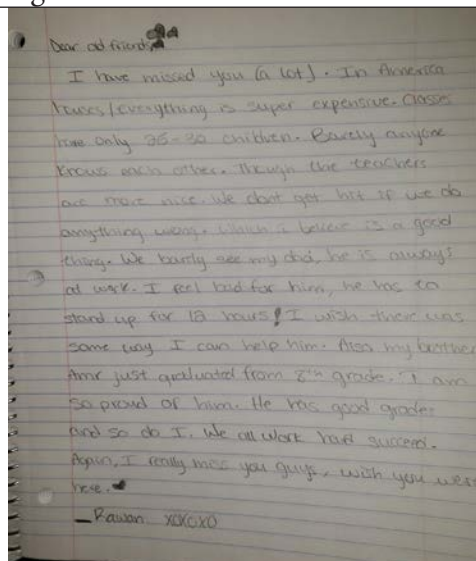 Dear old friends
I have missed you (a lot). In America
houses/everything is super expensive. Classes
have only 25-30 children. Barely anyone
knows each other. Though the teachers
are more nice. We dont get hit if we do
anything wrong. Which i believe is a good
thing. We barely see my dad, he is always
at work. I feel bad for him, he has to
stand up for 12 hours! I wish there was
some way I can help him. Also my brother
Amr just graduated from 8th grade. I am
so proud of him. He has good grades
and so do I. We all work hard succeed.
Again, I really miss you guys, wish you were
here.
- Rawan xoxoxo